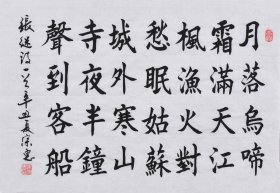 月落烏啼
霜滿天江
楓漁火對
愁眠姑蘇
城外寒山
寺夜半鐘
聲到客船
張继詩一首辛丑夏